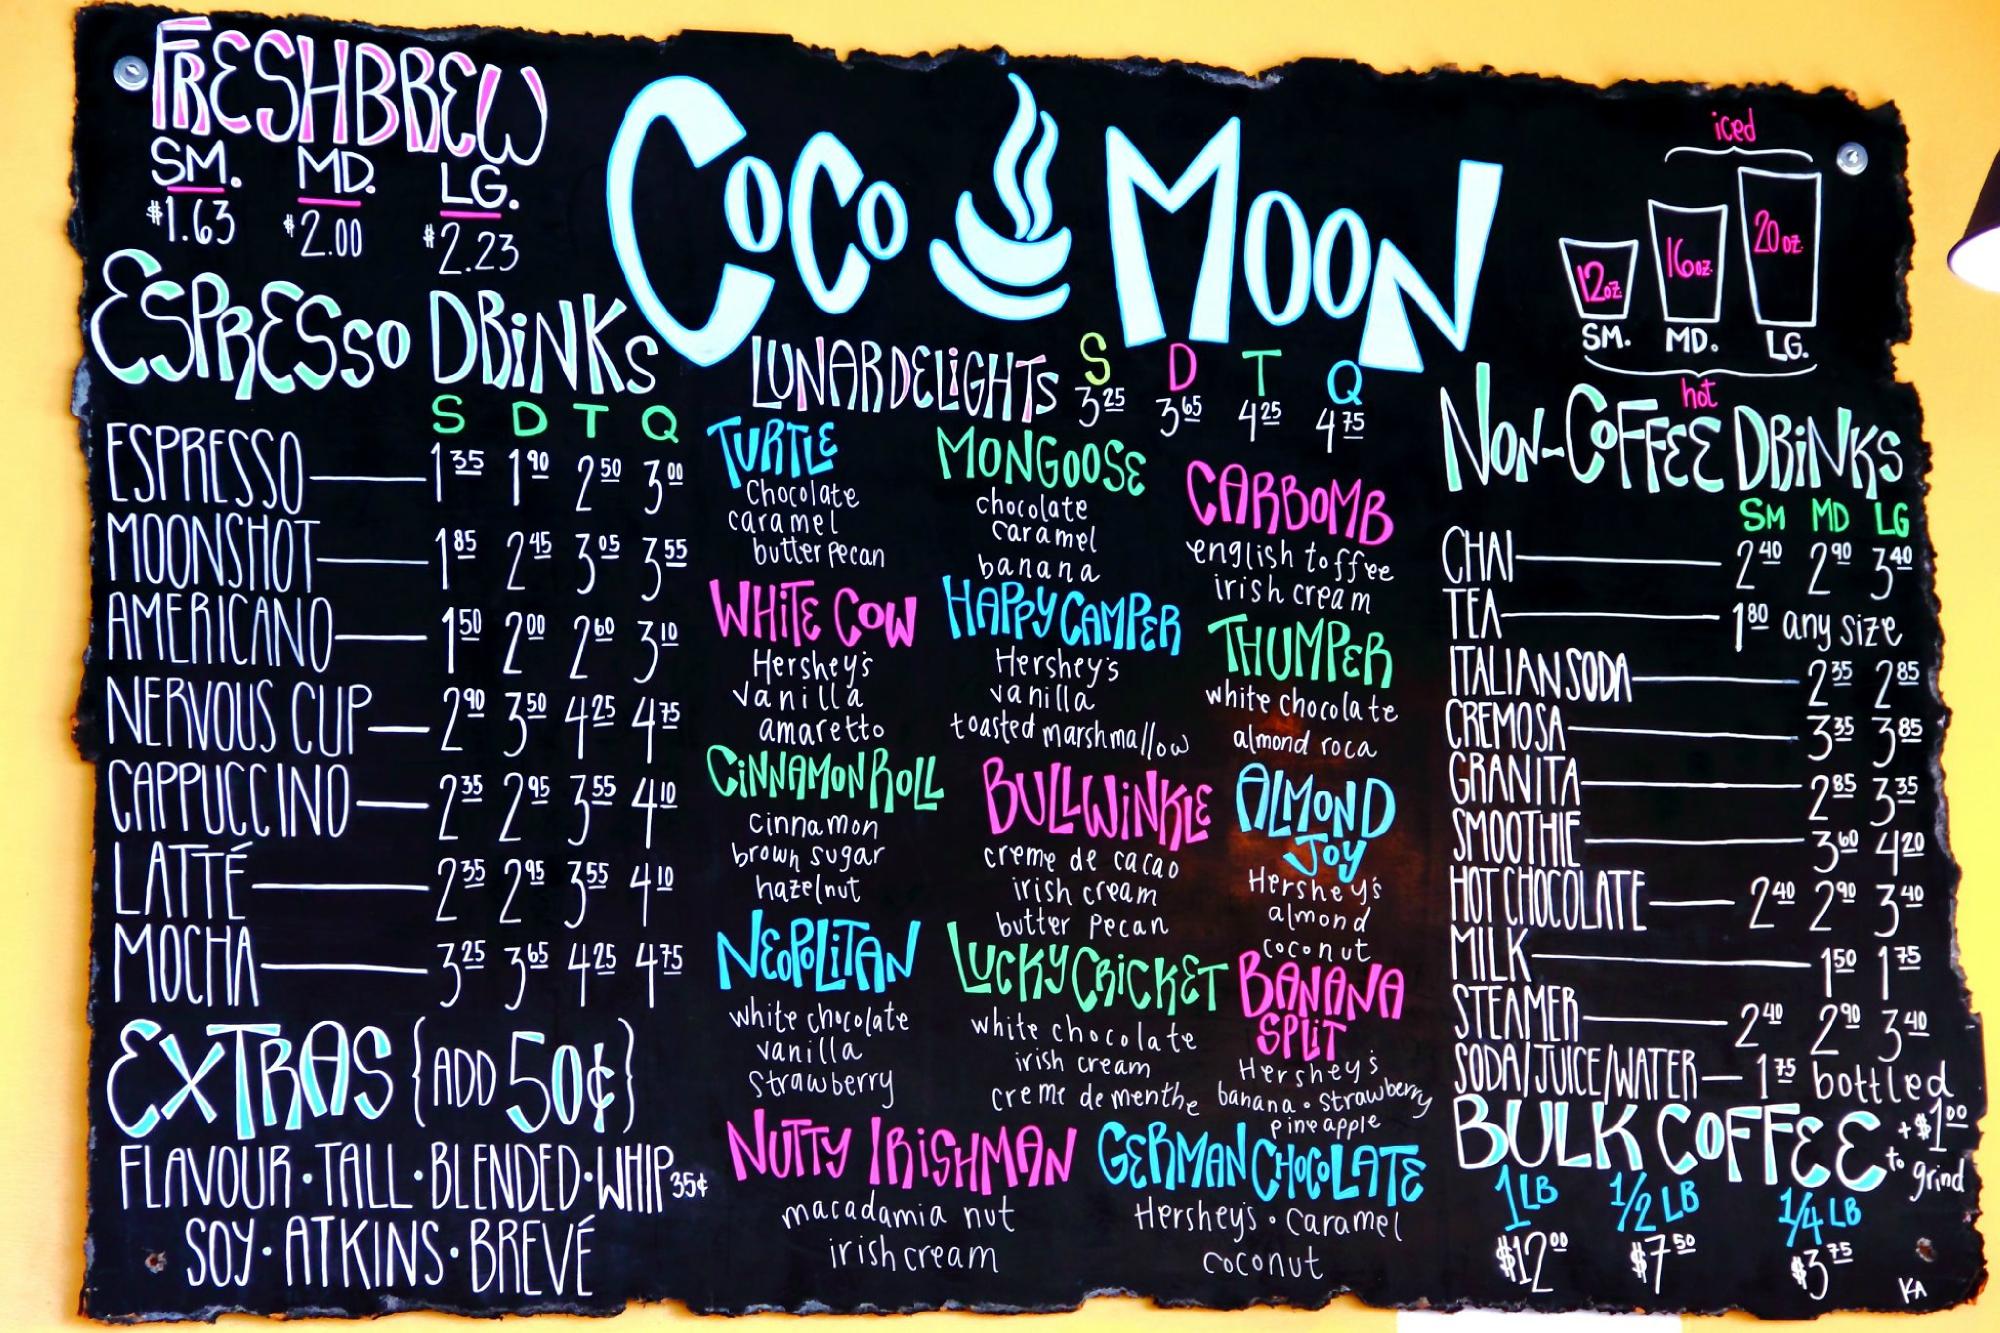 FRESHBREW
SM. MD. LG.
$1.63 $2.00 $2.23
COCO MOON
iced
12oz. 16oz. 20oz.
SM. MD. LG.
hot
ESPRESSO DRINKS
S D T Q
ESPRESSO 1 35 1 90 2 50 3 00
MOONSHOT 1 85 2 45 3 05 3 55
AMERICANO 1 50 2 00 2 60 3 10
NERVOUS CUP 2 90 3 50 4 25 4 75
CAPPUCCINO 2 35 2 95 3 55 4 10
LATTÉ 2 35 2 95 3 55 4 10
MOCHA 3 25 3 65 4 25 4 75
EXTRAS {ADD 50¢}
FLAVOUR · TALL · BLENDED · WHIP 35¢
SOY · ATKINS · BREVÉ
LUNAR DELIGHTS S D T Q
3 25 3 65 4 25 4 75
TURTLE
Chocolate
caramel
butter pecan
MONGOOSE
chocolate
caramel
banana
CARBOMB
english toffee
irish cream
WHITE COW
Hershey's
vanilla
amaretto
HAPPY CAMPER
Hershey's
vanilla
toasted marshmallow
THUMPER
white chocolate
almond roca
CINNAMON ROLL
cinnamon
brown sugar
hazelnut
BULLWINKLE
creme de cacao
irish cream
butter pecan
ALMOND
JOY
Hershey's
almond
coconut
NEOPOLITAN
white chocolate
vanilla
strawberry
LUCKY CRICKET
white chocolate
irish cream
creme de menthe
BANANA
SPLIT
Hershey's
banana · strawberry
pineapple
NUTTY IRISHMAN
macadamia nut
irish cream
GERMAN CHOCOLATE
Hershey's · caramel
coconut
NON-COFFEE DRINKS
SM MD LG
CHAI 2 40 2 90 3 40
TEA 1 80 any size
ITALIAN SODA 2 35 2 85
CREMOSA 3 35 3 85
GRANITA 2 85 3 35
SMOOTHIE 3 60 4 20
HOT CHOCOLATE 2 40 2 90 3 40
MILK 1 50 1 75
STEAMER 2 40 2 90 3 40
SODA/JUICE/WATER 1 75 bottled
BULK COFFEE +$1 00
to grind
1 LB 1/2 LB 1/4 LB
$12 00 $7 50 $3 75
KA